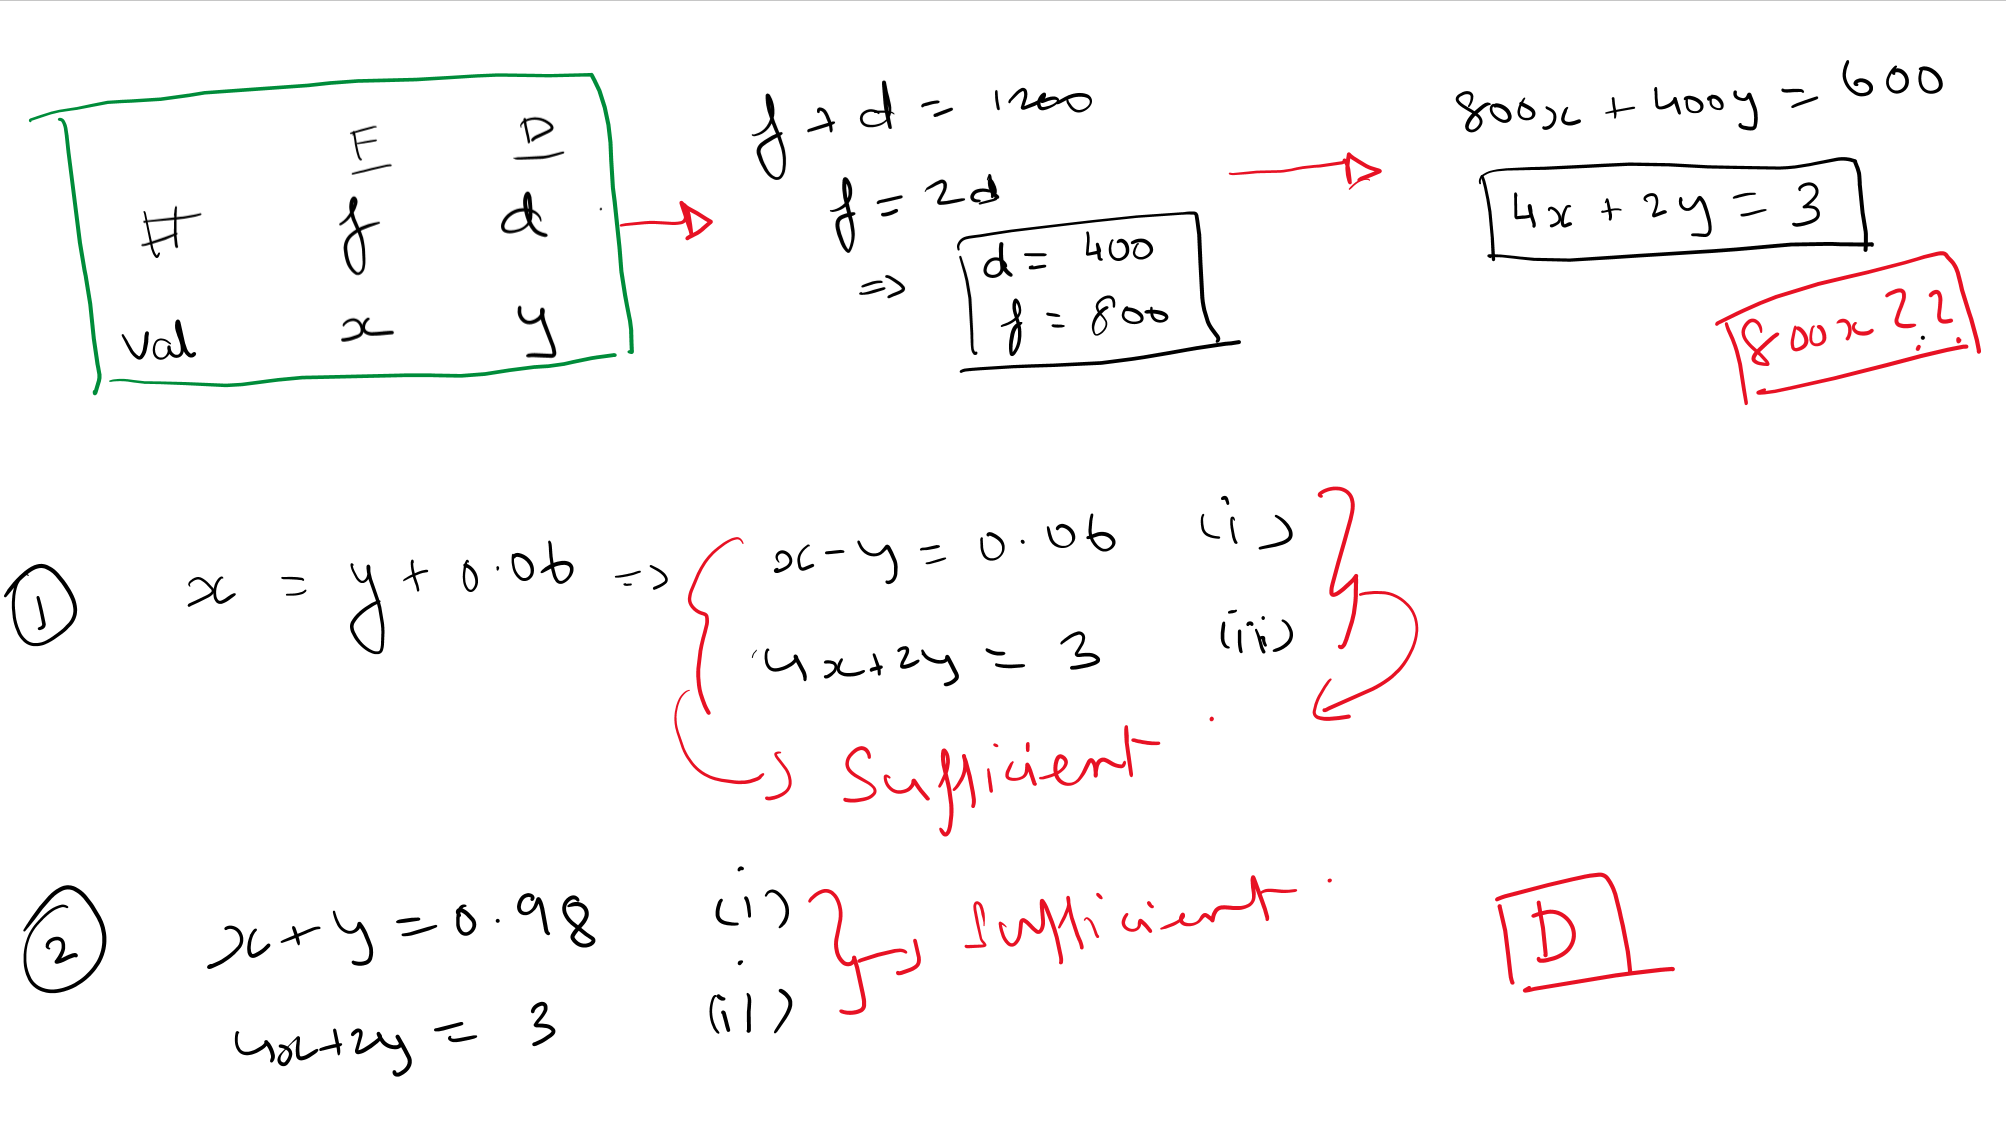 F D
# f d
val x y
f + d = 1200
f = 2d
=> d = 400
f = 800
800x + 400y = 600
4x + 2y = 3
800x ??
1 x = y + 0.06 => x - y = 0.06 (i)
4x + 2y = 3 (ii)
Sufficient.
2 x + y = 0.98 (i)
4x + 2y = 3 (ii)
Sufficient.
D